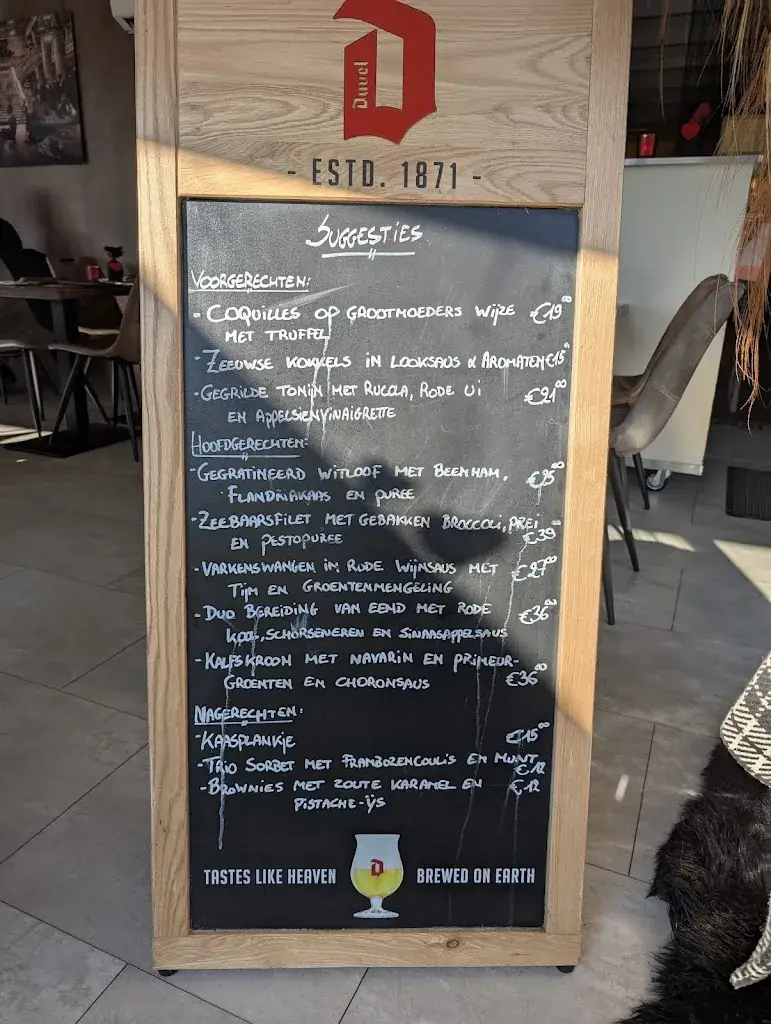 Duvel
- ESTD. 1871 -
SUGGESTIES
VOORGERECHTEN:
- COQUILLES OP GROOTMOEDERS WIJZE €19⁰⁰
MET TRUFFEL
- ZEEUWSE KOKKELS IN LOOKSAUS & AROMATEN €15⁰
- GEGRILDE TONIJN MET RUCOLA, RODE UI €21⁰⁰
EN APPELSIENVINAIGRETTE
HOOFDGERECHTEN:
- GEGRATINEERD WITLOOF MET BEENHAM, €25⁰⁰
FLANDRIAKAAS EN PUREE
- ZEEBAARSFILET MET GEBAKKEN BROCCOLI, PREI
EN PESTOPUREE €39⁰⁰
- VARKENSWANGEN IN RODE WIJNSAUS MET €27⁰⁰
TIJM EN GROENTENMENGELING
- DUO BEREIDING VAN EEND MET RODE €36⁰⁰
KOOL, SCHORSENEREN EN SINAASAPPELSAUS
- KALFSKROON MET NAVARIN EN PRIMEUR-
GROENTEN EN CHORONSAUS €36⁰⁰
NAGERECHTEN:
- KAASPLANKJE €15⁰⁰
- TRIO SORBET MET FRAMBOZENCOULIS EN MUNT €12
- BROWNIES MET ZOUTE KARAMEL EN €12
PISTACHE-IJS
TASTES LIKE HEAVEN BREWED ON EARTH